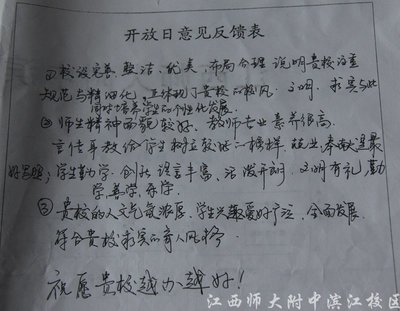 开放日意见反馈表
①校设完善整洁、优美、布局合理 说明贵校注重
规范与精细化,正体现了贵校的校风 文明、求实与此
同时培养学生的个性化发展。
②师生精神面貌较好、教师专业素养很高,
言传身教给学生树立较好的榜样 敬业、奉献是最
好写照;学生勤学、创新 语言丰富、活泼开朗、文明有礼,勤
学善学、好学
③ 贵校的人文气氛浓厚、学生兴趣爱好广泛、全面发展
符合贵校求实的育人风格
祝愿贵校越办越好!
江西师大附中滨江校区